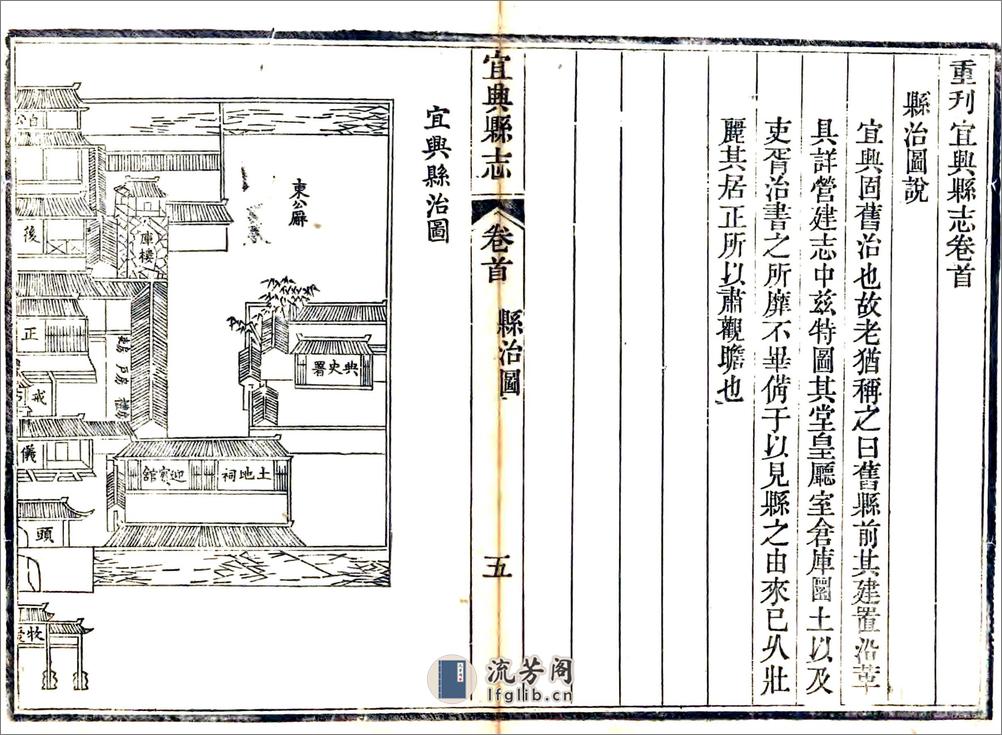 重刋宜興縣志卷首
縣治圖說
宜興固舊治也故老猶稱之曰舊縣前其建置沿革
具詳營建志中兹特圖其堂皇廳室倉庫圜土以及
吏胥治書之所靡不畢備于以見縣之由來已久壯
麗其居正所以肅觀瞻也
宜興縣志
卷首
縣治圖
五
宜興縣治圖
東公廨
庫樓
典史署
戶房
禮房
土地祠
迎賓館
後
正
戒
儀
頭
牧
流芳阁
lfglib.cn